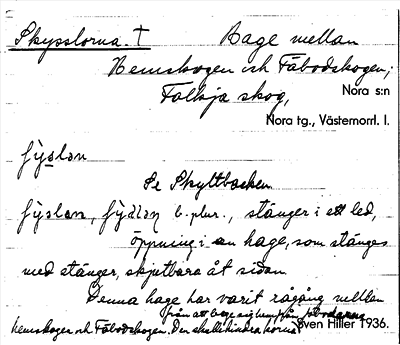 Skysslorna. † Hage mellan
Hemskogen och Fäbodskogen;
Folkja skog, Nora s:n
Nora tg., Västernorrl. l.
Se Skyltbacken
b. plur., stänger i ett led,
öppning i en hage, som stänges
med stänger, skjutbara åt sidan
Denna hage har varit rågång mellan
Hemskogen och Fäbodskogen. Den skulle hindra korna
från att bege sig hem från fäbodarna
Sven Hiller 1936.